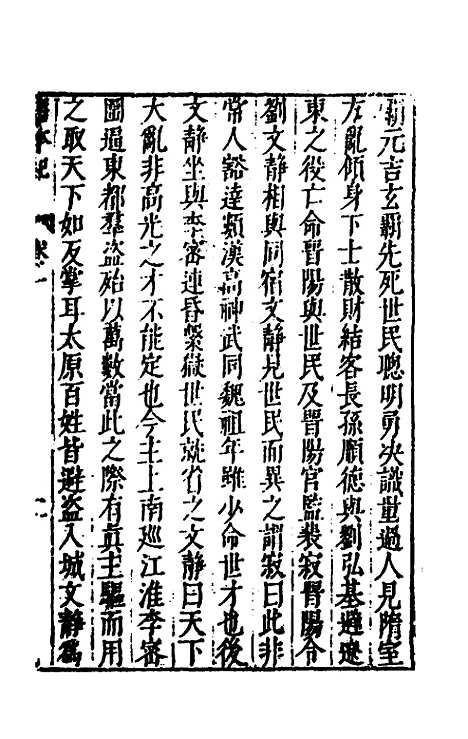 霸元吉玄霸先死世民聰明勇決識量過人見隋室
方亂傾身下士散財結客長孫順德與劉弘基避遼
東之役亡命晉陽與世民及晉陽宮監裴寂晉陽令
劉文靜相與同宿文靜見世民而異之謂寂曰此非
常人豁達類漢高神武同魏祖年雖少命世才也後
文靜坐與李密連昏繫獄世民就省之文靜曰天下
大亂非高光之才不能定也今主上南巡江淮李密
圍逼東都羣盜殆以萬數當此之際有真主驅而用
之取天下如反掌耳太原百姓皆避盜入城文靜為